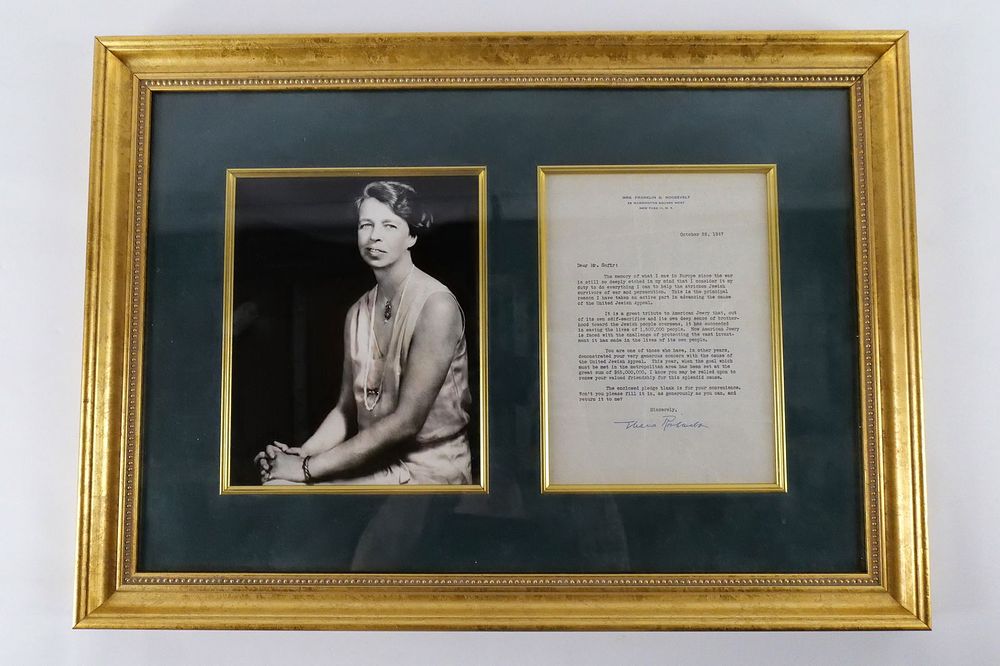 MRS. FRANKLIN D. ROOSEVELT
29 WASHINGTON SQUARE WEST
NEW YORK 11, N. Y.
October 28, 1947
Dear Mr.
The memory of what I saw in Europe since the war
is still so deeply etched in my mind that I consider it my
duty to do everything I can to help the stricken Jewish
survivors of war and persecution. This is the principal
reason I have taken an active part in advancing the cause
of the United Jewish Appeal.
It is a great tribute to American Jewry that, out
of its own self-sacrifice and its own deep sense of brother-
hood toward the Jewish people overseas, it has succeeded
in saving the lives of 1,500,000 people. Now American Jewry
is faced with the challenge of protecting the vast invest-
ment it has made in the lives of its own people.
You are one of those who have, in other years,
demonstrated your very generous concern with the cause of
the United Jewish Appeal. This year, when the goal which
must be met in the metropolitan area has been set at the
great sum of $65,000,000, I know you may be relied upon to
renew your valued friendship for this splendid cause.
The enclosed pledge blank is for your convenience.
Won't you please fill it in, as generously as you can, and
return it to me?
Sincerely,
Eleanor Roosevelt